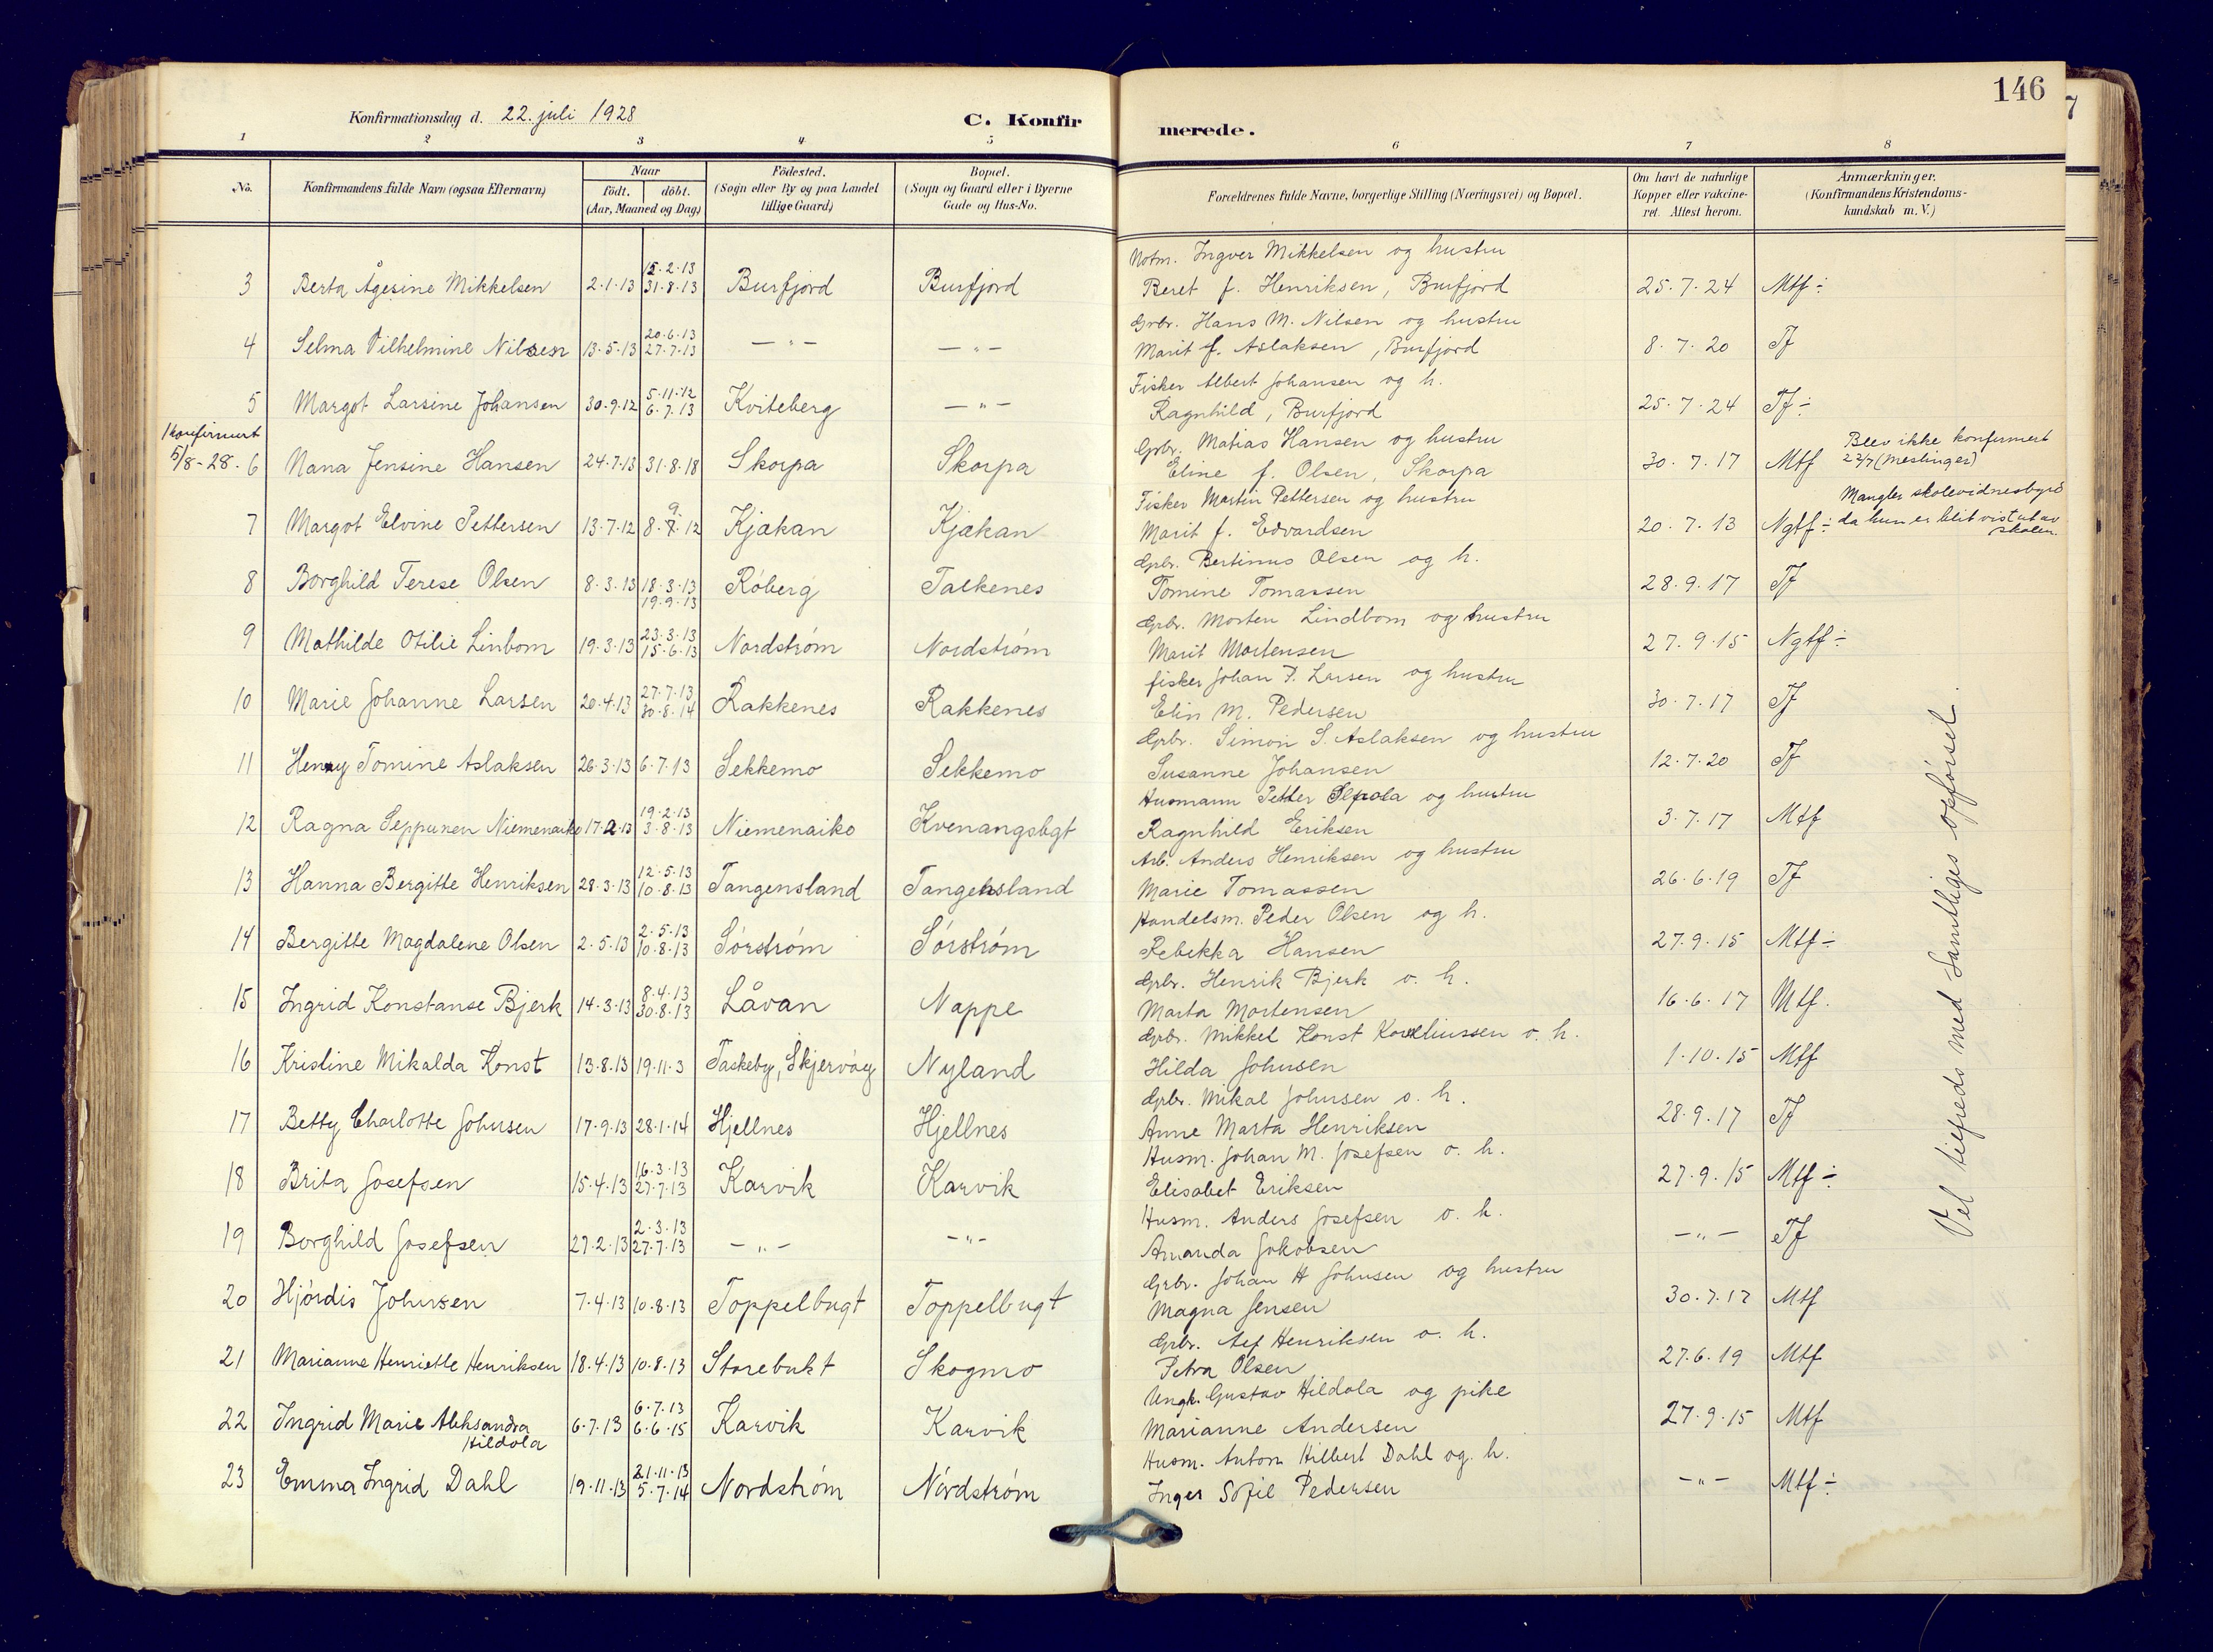 146
Konfirmationsdag d. 22. juli 1928
C. Konfirmerede.
1 2 3 4 5 6 7 8
No. Konfirmandens fulde Navn (ogsaa Efternavn) Naar født. døbt. (Aar, Maaned og Dag) Födested. (Sogn eller By og paa Landet tillige Gaard) Bopæl. (Sogn og Gaard eller i Byerne Gade og Hus-No. Forældrenes fulde Navne, borgerlige Stilling (Næringsvei) og Bopæl. Om havt de naturlige Kopper eller vakcineret. Attest herom. Anmærkninger. (Konfirmandens Kristendomskundskab m. V.)
3 Berta Ågesine Mikkelsen 2.1.13 15.2.13 31.8.13 Burfjord Burfjord Notm. Ingver Mikkelsen og hustru Beret f. Henriksen, Burfjord 25.7.24 Mtf ÷
4 Selma Vilhelmine Nilsen 13.5.13 20.6.13 27.7.13 — " — — " — Grbr. Hans M. Nilsen og hustru Marit f. Aslaksen, Burfjord 8.7.20 Tf
5 Margot Larsine Johansen 30.9.12 5.11.12 6.7.13 Kviteberg — " — Fisker Albert Johansen og h. Ragnhild, Burfjord 25.7.24 Tf ÷
Konfirmert 5/8-28. 6 Nana Jensine Hansen 24.7.13 31.8.18 Skorpa Skorpa Grbr. Matias Hansen og hustru Eline f. Olsen, Skorpa 30.7.17 Mtf Blev ikke konfirmert 22/7 (Meslinger)
7 Margot Elvine Pettersen 13.7.12 8.9.12 Kjækan Kjækan Fisker Martin Pettersen og hustru Marit f. Edvardsen 20.7.13 Ngtf ÷ Mangler skolevidnesbyrd da hun er blit vist ut av skolen.
8 Borghild Terese Olsen 8.3.13 18.3.13 19.9.13 Röberg Tælkenes Grbr. Bertinus Olsen og h. Tomine Tomassen 28.9.17 Tf
9 Mathilde Otilie Linbom 19.3.13 23.3.13 15.6.13 Nordström Nordström Grbr. Morten Lindbom og hustru Marit Mortensen 27.9.15 Ngtf ÷
10 Marie Johanne Larsen 20.4.13 27.7.13 30.8.14 Rakkenes Rakkenes fisker Johan P. Larsen og hustru Elin M. Pedersen 30.7.17 Tf
11 Henny Tomine Aslaksen 26.3.13 6.7.13 Sekkemo Sekkemo Grbr. Simon S. Aslaksen og hustru Susanne Johansen 12.7.20 Tf
12 Ragna Seppunen Niemenaiko 17.2.13 19.2.13 3.8.13 Niemenaiko Kvenangsbgt Husmann Petter og hustru Ragnhild Eriksen 3.7.17 Mtf
13 Hanna Bergitte Henriksen 28.3.13 12.5.13 10.8.13 Tangensland Tangensland Arb. Anders Henriksen og hustru Marie Tomassen 26.6.19 Tf
14 Bergitte Magdalene Olsen 2.5.13 2.5.13 10.8.13 Sörström Sörström Handelsm. Peder Olsen og h. Rebekka Hansen 27.9.15 Mtf ÷
15 Ingrid Konstanse Bjerk 14.3.13 8.4.13 30.8.13 Låvan Nappe Grbr. Henrik Bjerk o. h. Marta Mortensen 16.6.17 Mtf.
16 Kristine Mikalda Konst 13.8.13 19.11.3 Taskeby, Skjervøy Nyland Grbr. Mikkel Konst Korneliussen o. h. Hilda Johnsen 1.10.15 Mtf
17 Betty Charlotte Johnsen 17.9.13 28.1.14 Hjellnes Hjellnes Grbr. Mikal Johnsen o. h. Anne Marta Henriksen 28.9.17 Tf
18 Brita Josefsen 15.4.13 16.3.13 27.7.13 Karvik Karvik Husm. Johan M. Josefsen o. h. Elisabet Eriksen 27.9.15 Mtf ÷
19 Borghild Josefsen 27.2.13 2.3.13 27.7.13 — " — — " — Husm. Anders Josefsen o. h. Amanda Jakobsen — " — Tf
20 Hjördis Johnsen 7.4.13 10.8.13 Toppelbugt Toppelbugt Grbr. Johan H Johnsen og hustru Magna Jensen 30.7.17 Mtf
21 Marianne Henriette Henriksen 18.4.13 10.8.13 Storebukt Skogmo Grbr. Henriksen o. h. Petra Olsen 27.6.19 Mtf
22 Ingrid Marie Aleksandra Hildola 6.7.13 6.7.13 6.6.15 Karvik Karvik Ungk. Gustav Hildola og pike Marianne Andersen 27.9.15 Mtf
23 Emma Ingrid Dahl 19.11.13 21.11.13 5.7.14 Nordström Nordström Husm. Anton Hilbert Dahl og h. Inger Sofie Pedersen — " — Mtf ÷
Vel tilfreds med samtliges opførsel.